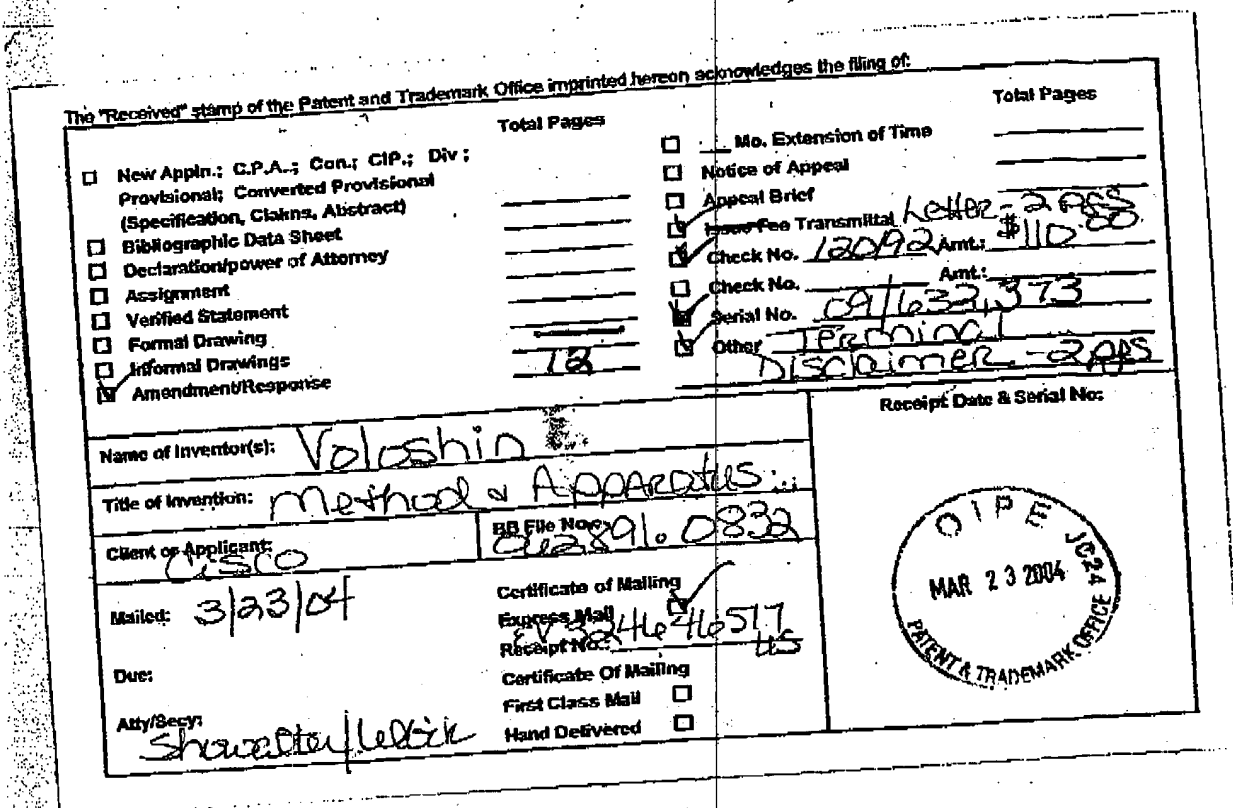 The "Received" stamp of the Patent and Trademark Office imprinted hereon acknowledges the filing of:
Total Pages
New Appln.; C.P.A..; Con.; CIP.; Div ;
Provisional; Converted Provisional
(Specification, Claims, Abstract)
Bibliographic Data Sheet
Declaration/power of Attorney
Assignment
Verified Statement
Formal Drawing
Informal Drawings
Amendment/Response 12
Total Pages
___ Mo. Extension of Time
Notice of Appeal
Appeal Brief
Issue Fee Transmittal Letter - 2 pgs
Check No. 120192 Amt.: $110.00
Check No. Amt.:
Serial No. 09/632,373
Other Terminal
Disclaimer - 2 pgs
Name of Inventor(s): Voloshin
Title of Invention: Method & Apparatus...
Client or Applicant: Cisco
BB File No.: 062891.0832
Mailed: 3/23/04
Due:
Atty/Secy:
Showalter/
Certificate of Mailing
Express Mail
Receipt No.: EV 324646517 US
Certificate Of Mailing
First Class Mail
Hand Delivered
Receipt Date & Serial No:
OIPE JC24
MAR 23 2004
PATENT & TRADEMARK OFFICE